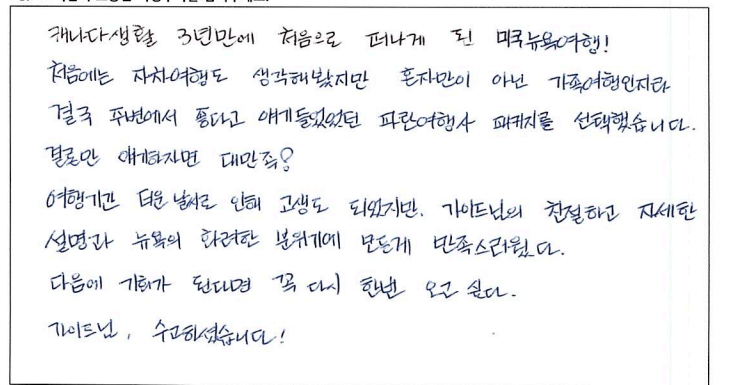 캐나다생활 3년만에 처음으로 떠나게 된 미국뉴욕여행!
처음에는 자차여행도 생각해봤지만 혼자만이 아닌 가족여행인지라
결국 주변에서 좋다고 얘기들었었던 파란여행사 패키지를 선택했습니다.
결론만 얘기하자면 대만족?
여행기간 더운 날씨로 인해 고생도 되었지만. 가이드님의 친절하고 자세한
설명과 뉴욕의 화려한 분위기에 모든게 만족스러웠다.
다음에 기회가 된다면 꼭 다시 한번 오고 싶다.
가이드님, 수고하셨습니다!